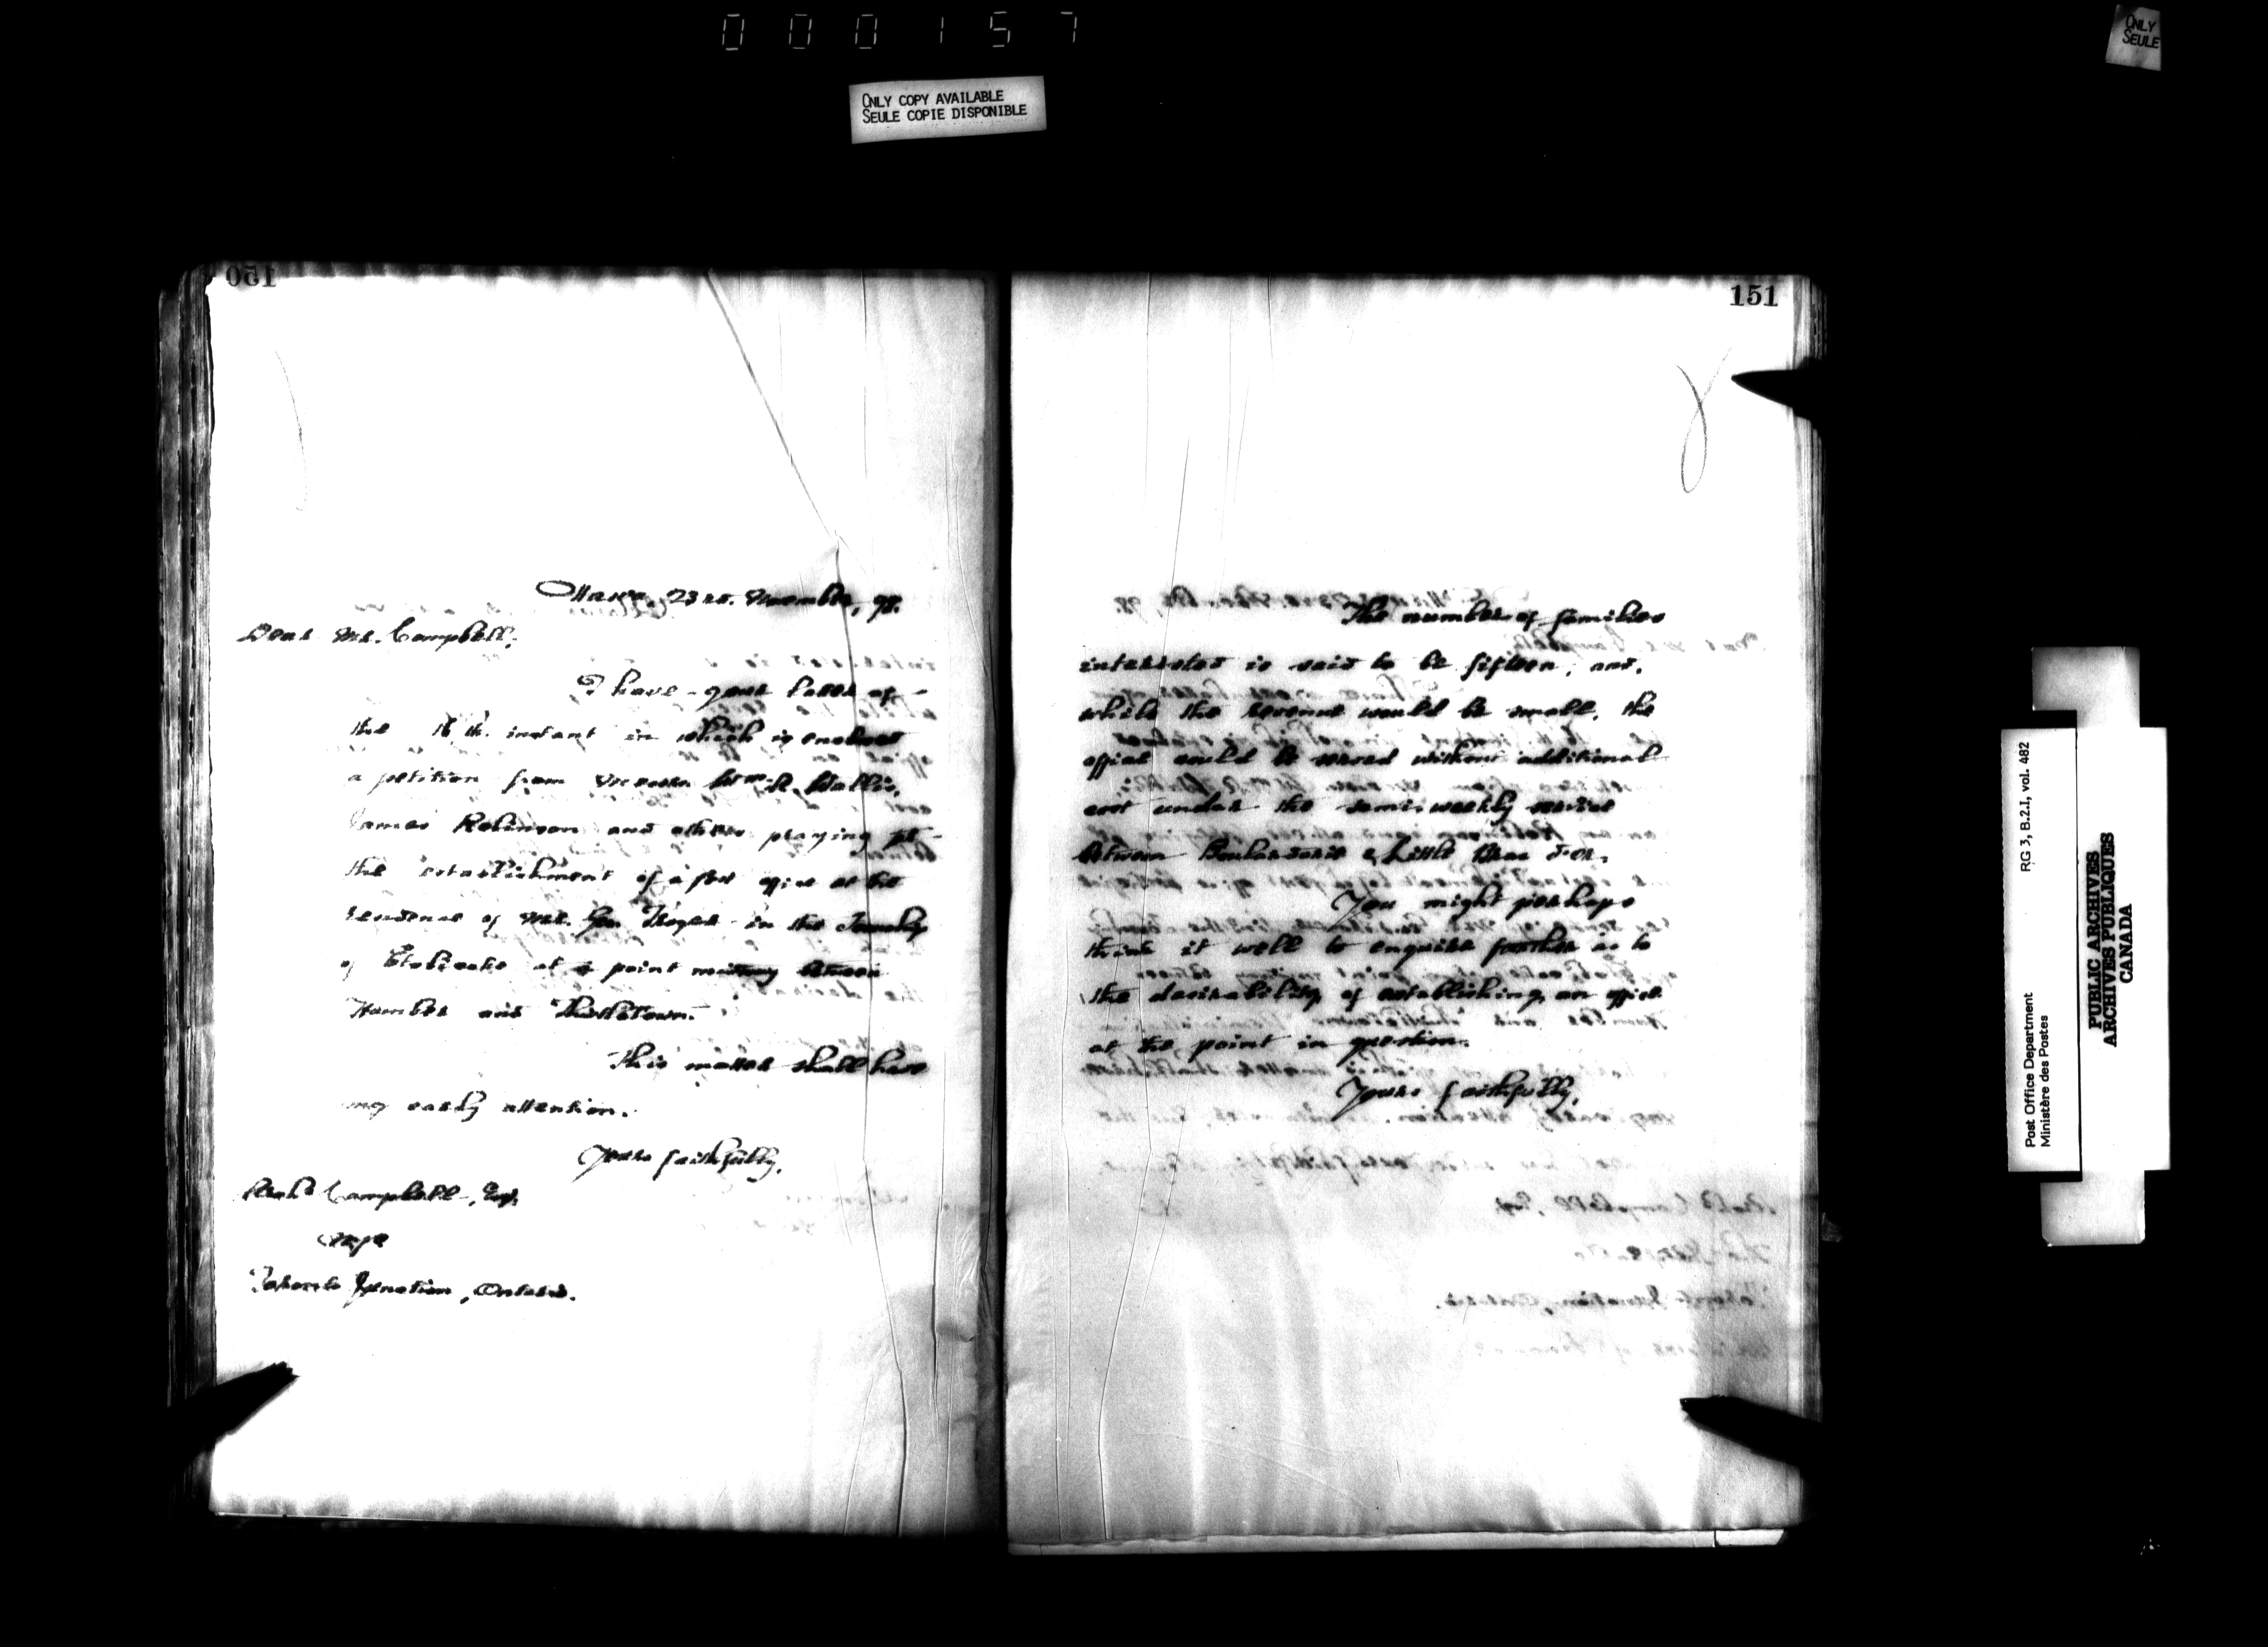 000157
ONLY COPY AVAILABLE
SEULE COPIE DISPONIBLE
ONLY
SEULE
150
Ottawa, 23rd. November, 98.
Dear Mr. Campbell,
I have your letter of
the 16th. instant in which is enclosed
a petition from Messrs Wm. R. Wallis,
James Robinson and others praying for
the establishment of a post office at the
residence of Mr. Geo. in the Township
of Etobicoke at a point midway between
Humber and Thistletown.
This matter shall have
my early attention.
Yours faithfully,
Archd Campbell, Esq.
M.P.
Toronto Junction, Ontario.
151
The number of families
interested is said to be fifteen, and,
while the revenue would be small, the
office could be served without additional
cost under the semi-weekly service
between Boularderie & Little Bras d'Or.
You might perhaps
think it well to enquire further as to
the desirability of establishing an office
at the point in question.
Yours faithfully,
Post Office Department
Ministère des Postes
RG 3, B.2.I, vol. 482
PUBLIC ARCHIVES
ARCHIVES PUBLIQUES
CANADA